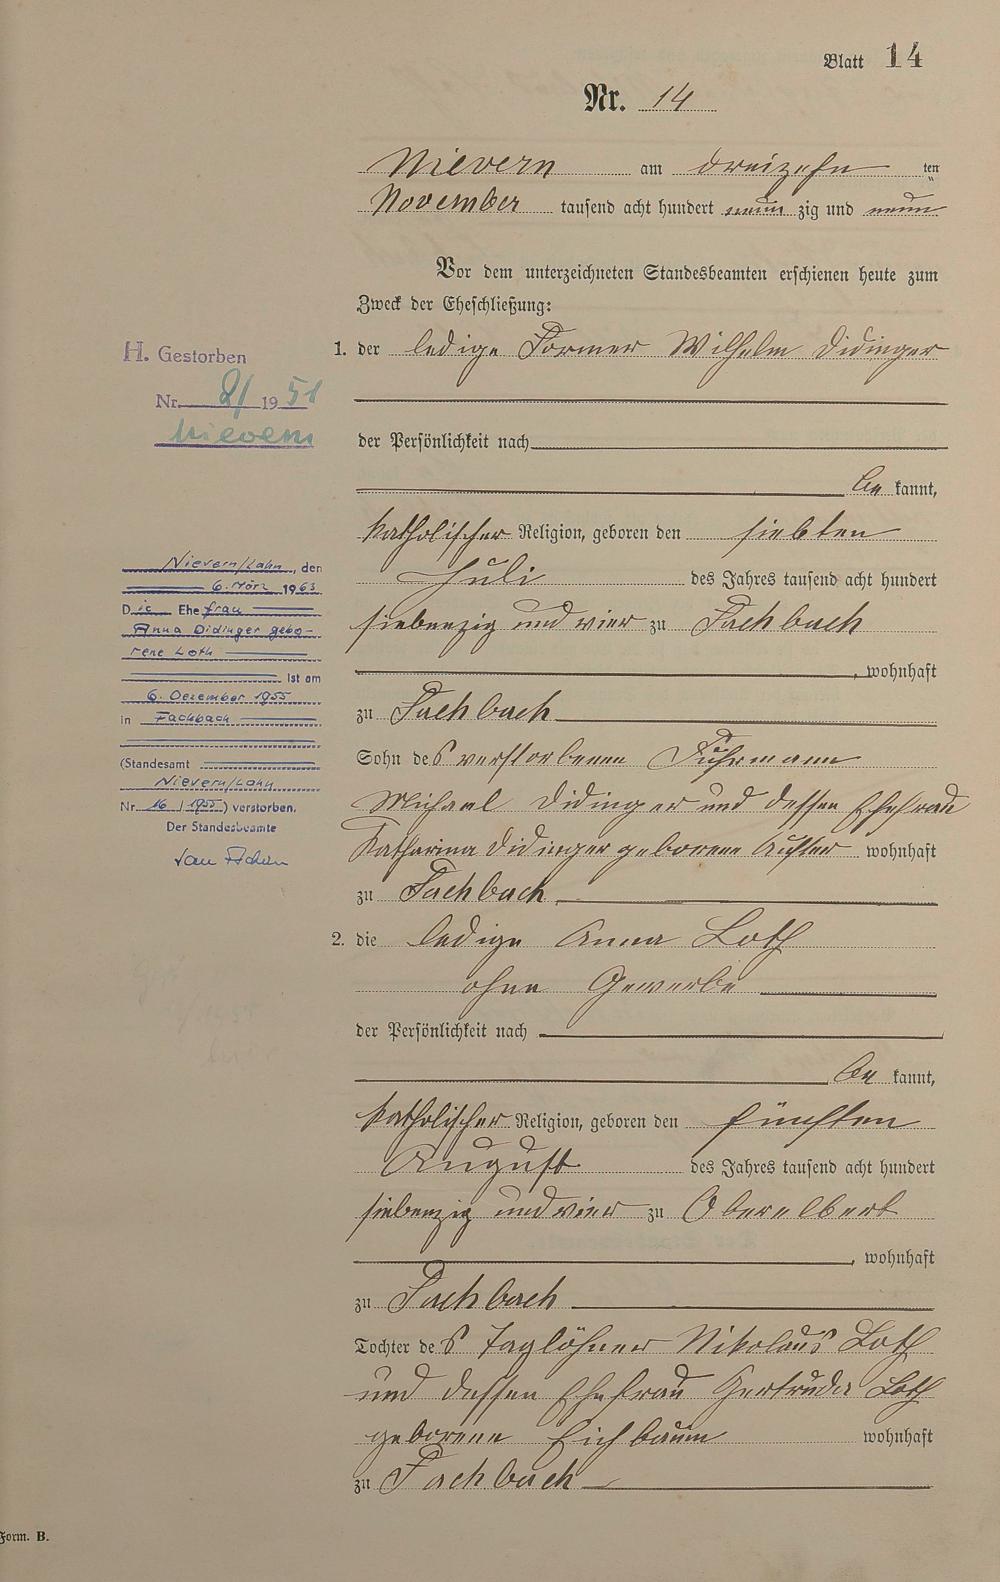 Blatt 14
Nr. 14
Nievern am dreizehnten
November tausend acht hundert neunzig und neun
Vor dem unterzeichneten Standesbeamten erschienen heute zum
Zweck der Eheschließung:
1. der ledige Former Wilhelm Didinger
der Persönlichkeit nach
bekannt,
katholischer Religion, geboren den siebten
Juli des Jahres tausend acht hundert
siebenzig und vier zu Fachbach
, wohnhaft
zu Fachbach
Sohn des verstorbenen Fuhrmann
Michael Didinger und dessen Ehefrau
Katharina Didinger geborene wohnhaft
zu Fachbach
2. die ledige Anna Loth
ohne Gewerbe
der Persönlichkeit nach
bekannt,
katholischer Religion, geboren den fünften
August des Jahres tausend acht hundert
siebenzig und vier zu Oberelbert
, wohnhaft
zu Fachbach
Tochter des Taglöhner Nikolaus Loth
und dessen Ehefrau Gertruda Loth
geborene Eichbaum wohnhaft
zu Fachbach
H. Gestorben
Nr. 2/1951
Nievern
Nievern/Lahn, den
6. März 1963
Die Ehefrau
Anna Didinger gebo-
rene Loth
ist am
6. Dezember 1955
in Fachbach
(Standesamt
Nievern/Lahn
Nr. 16/1955) verstorben.
Der Standesbeamte
Form. B.